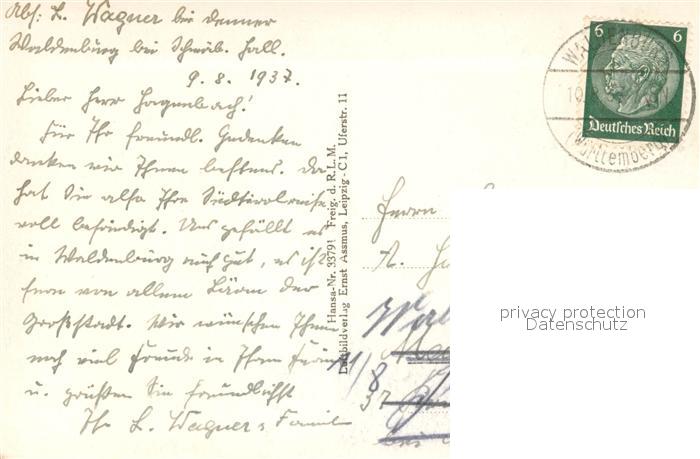 Abs: L. Wagner bei Denner
Waldenburg bei Schwäb. Hall.
9. 8. 1937.
Lieber Herr Hagenbach!
Für Ihr freundl. Gedenken
danken wir Ihnen bestens. Da
hat Sie also Ihre Südtirolreise
voll befriedigt. Uns gefällt es
in Waldenburg auch gut, es ist
fern von allem Lärm der
Großstadt. Wir wünschen Ihnen
noch viel Freude in Ihren Ferien
u. grüßen Sie freundlichst
Ihr L. Wagner u. Familie
Hansa-Nr. 33791 Freig. d. R.L.M.
Luftbildverlag Ernst Assmus, Leipzig-C1, Uferstr. 11
6 6
Deutsches Reich
(Württemberg)
Herrn
A.
11/8
37
bei
privacy protection
Datenschutz